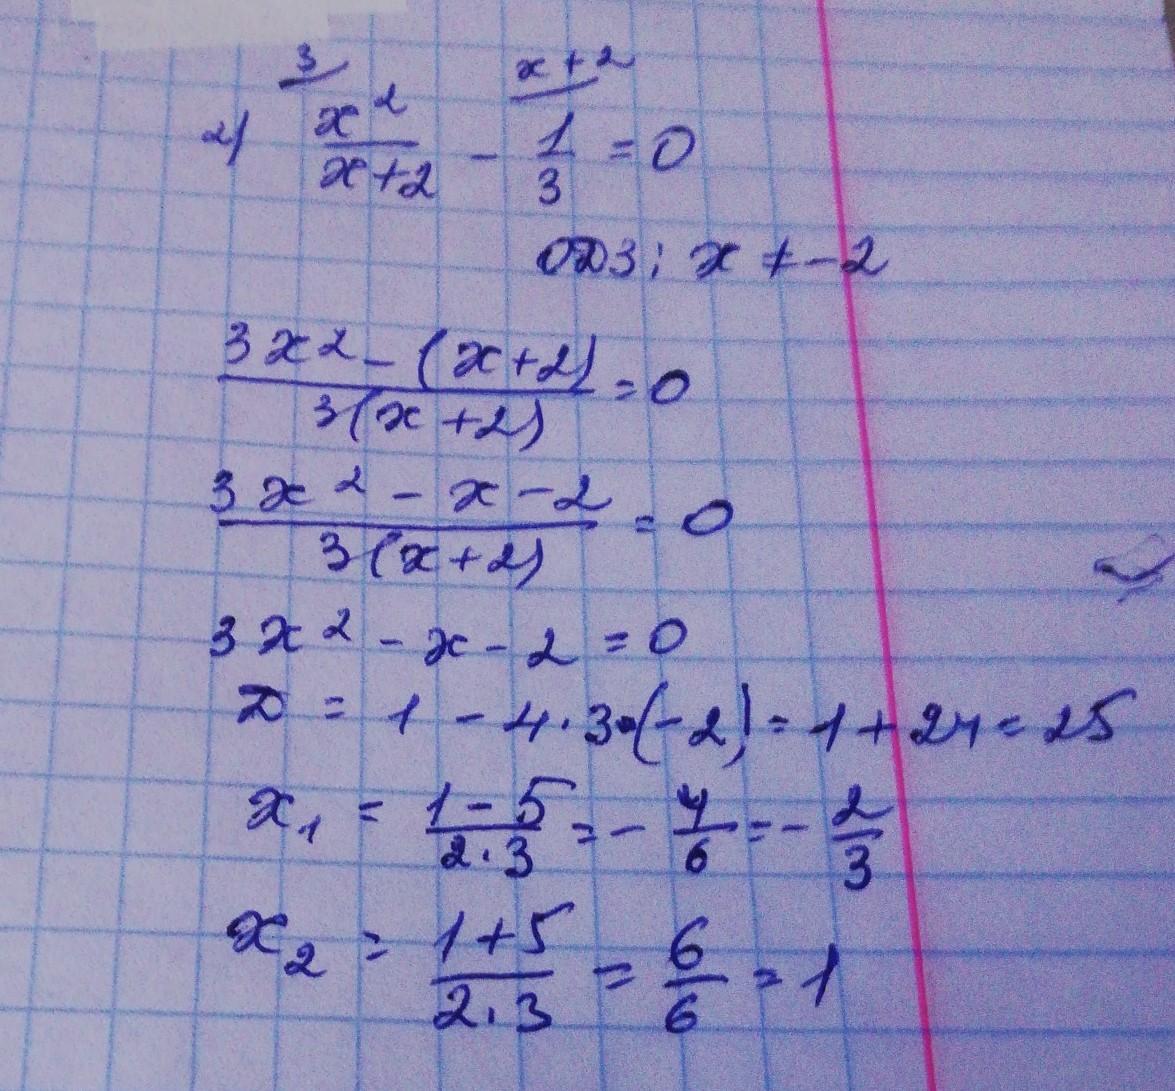 3 x+2
2) x²/(x+2) - 1/3 = 0
ОДЗ: x ≠ -2
(3x² - (x+2))/(3(x+2)) = 0
(3x² - x - 2)/(3(x+2)) = 0
3x² - x - 2 = 0
D = 1 - 4·3·(-2) = 1 + 24 = 25
x₁ = (1-5)/(2·3) = - 4/6 = - 2/3
x₂ = (1+5)/(2·3) = 6/6 = 1